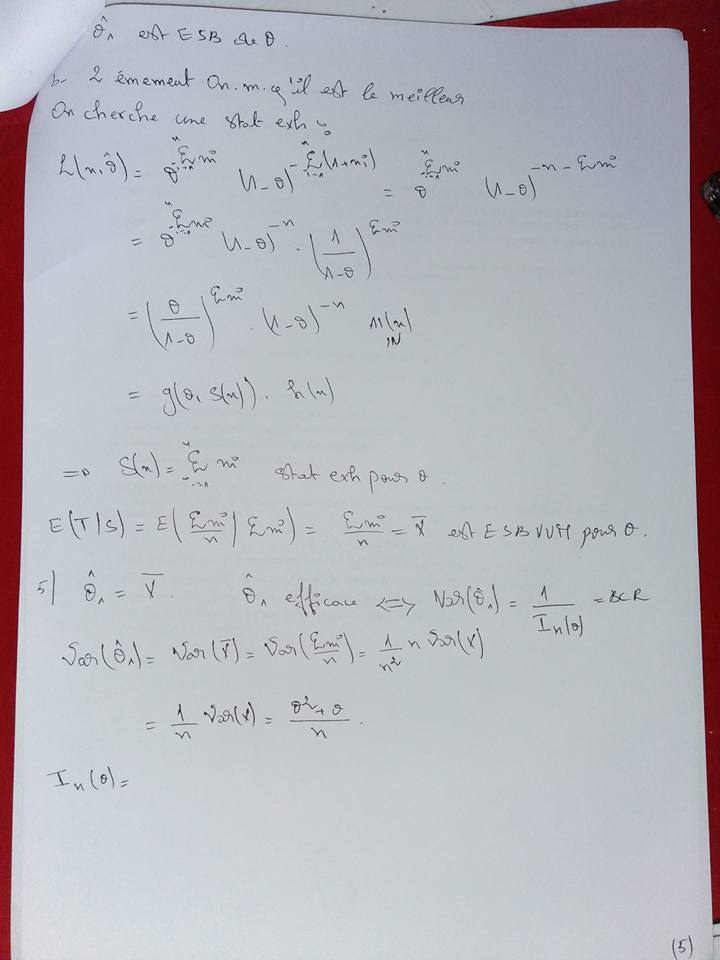 θ̂₁ est ESB de θ.
b- 2 émement On.m.q'il est le meilleur
On cherche une stat exh :
L(x,θ̂) = θ^{Σ_{i=1}^n xi} (1-θ)^{-Σ_{i=1}^n (1+xi)} = θ^{Σ_{i=1}^n xi} (1-θ)^{-n-Σxi}
= θ^{Σ_{i=1}^n xi} (1-θ)^{-n} · (1/(1-θ))^{Σxi}
= (θ/(1-θ))^{Σxi} · (1-θ)^{-n} 11(x) IN
= g(θ, S(x)) · h(x)
=> S(x) = Σ_{i=1}^n xi stat exh pour θ.
E(T/S) = E(Σxi/n | Σxi) = Σxi/n = X̄ est ESBVUM pour θ.
5/ θ̂₁ = X̄. θ̂₁ efficace <=> Var(θ̂₁) = 1/I_n(θ) = BCR
Var(θ̂₁) = Var(X̄) = Var(Σxi/n) = 1/n² n Var(X)
= 1/n Var(X) = (θ²+θ)/n.
I_n(θ) =
(5)